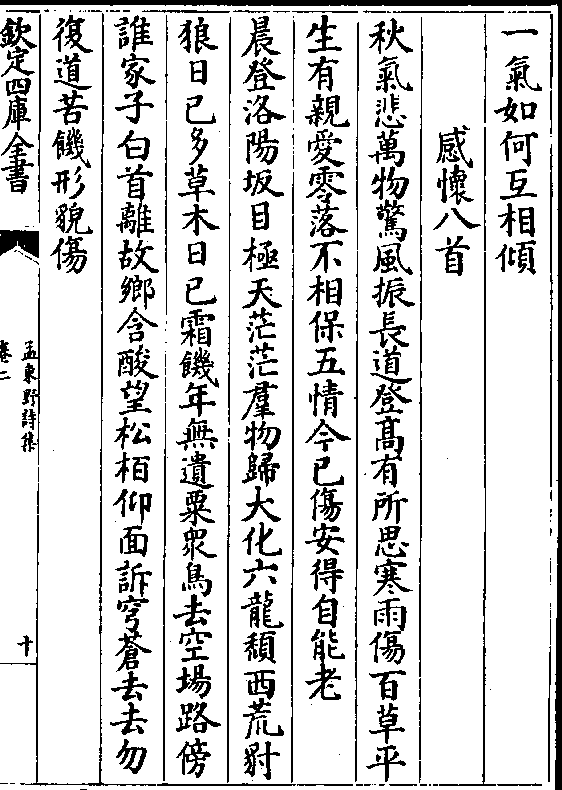 一氣如何互相傾
感懷八首
秋氣悲萬物驚風振長道登髙有所思寒雨傷百草平
生有親愛零落不相保五情今已傷安得自能老
晨登洛陽坂目極天茫茫羣物歸大化六龍頽西荒豺
狼日已多草木日已霜饑年無遺粟衆鳥去空場路傍
誰家子白首離故鄉含酸望松栢仰面訴穹蒼去去勿
復道苦饑形貌傷
欽定四庫全書
孟東野詩集
卷二
十